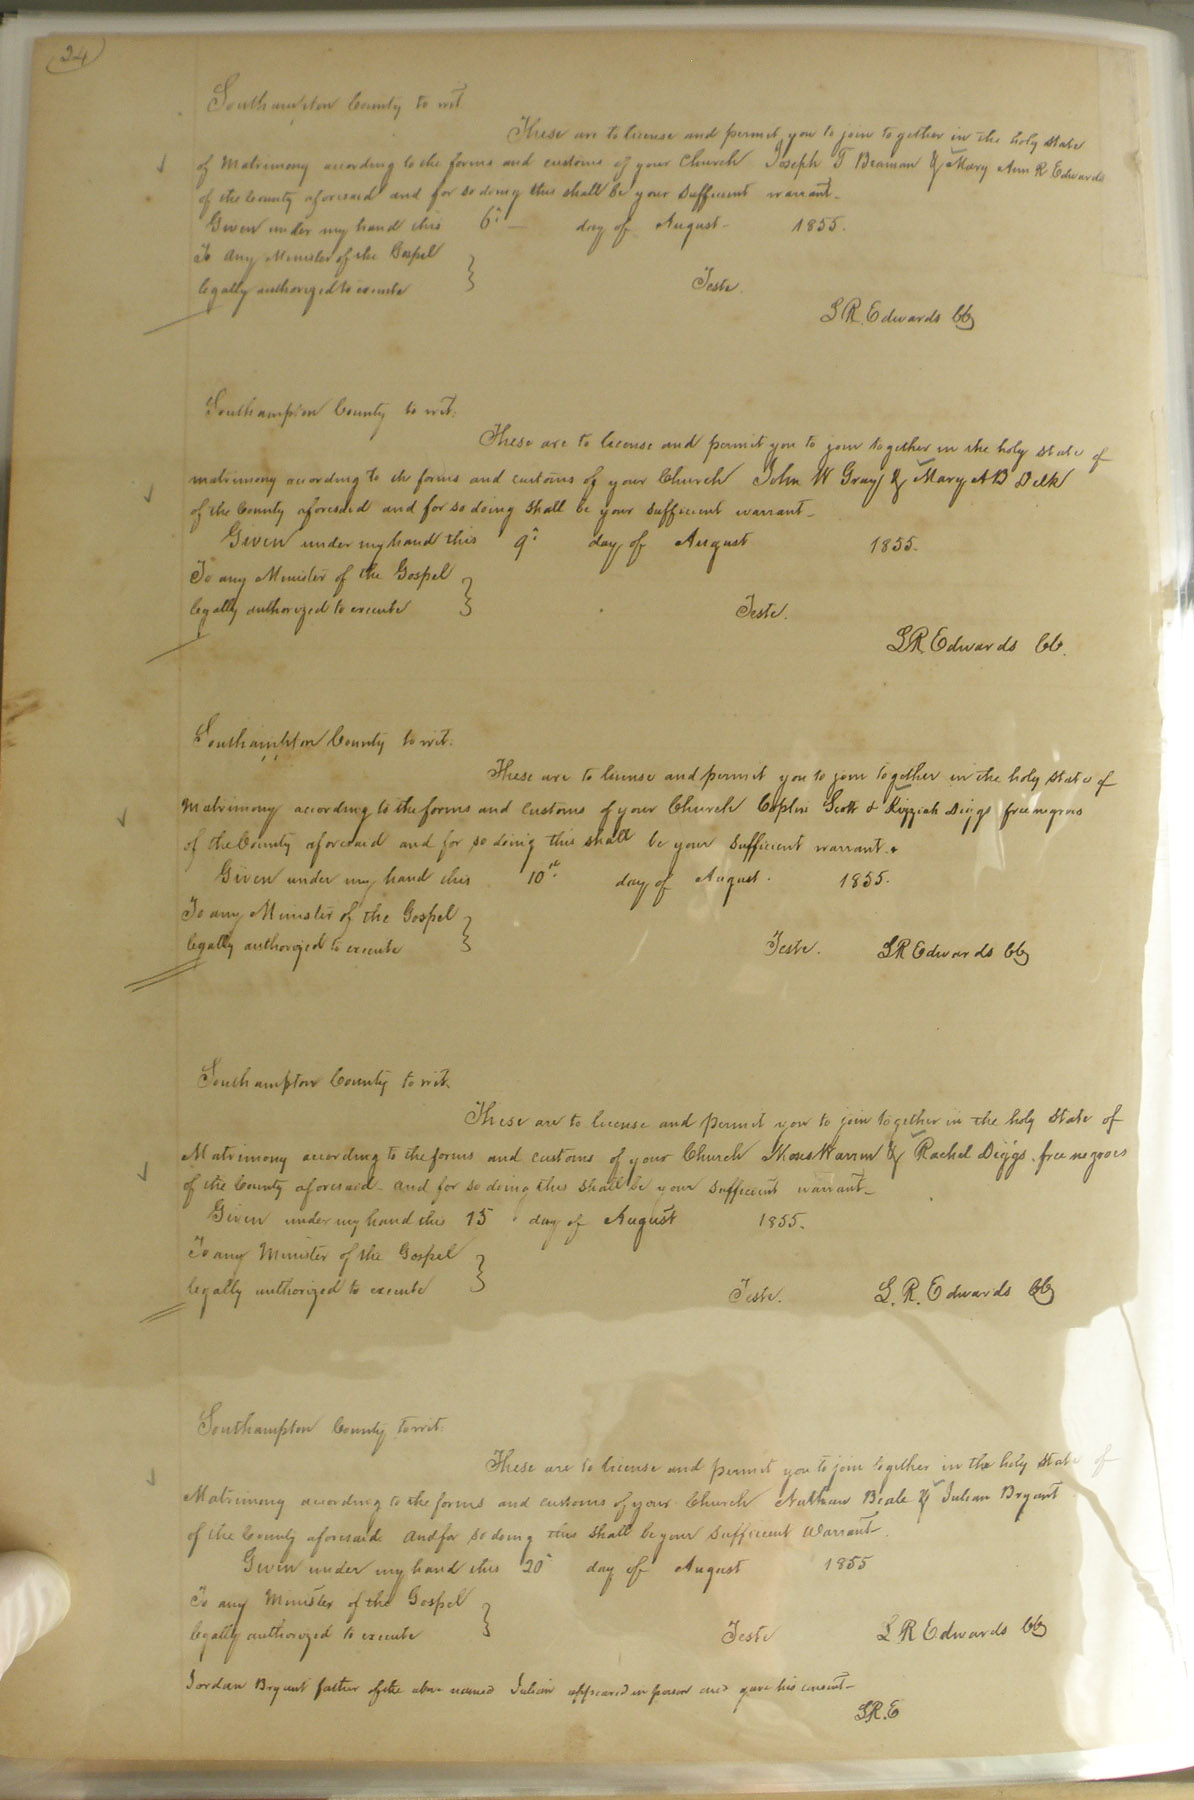 24
Southampton County to wit
These are to license and permit you to join together in the holy state
of Matrimony according to the forms and customs of your Church Joseph T Beaman & Mary Ann R Edwards
of the County aforesaid and for so doing this shall be your sufficient warrant.
Given under my hand this 6th day of August 1855.
To any Minister of the Gospel
legally authorized to execute
Teste.
L R. Edwards CC
Southampton County to wit.
These are to license and permit you to join together in the holy state of
matrimony according to the forms and customs of your Church John W Gray & Mary A B Delk
of the County aforesaid and for so doing shall be your sufficient warrant
Given under my hand this 9th day of August 1855.
To any Minister of the Gospel
legally authorized to execute
Teste.
L R. Edwards CC.
Southampton County to wit.
These are to license and permit you to join together in the holy state of
Matrimony according to the forms and customs of your Church Scott & Kizziah Diggs free negroes
of the County aforesaid and for so doing this shall be your sufficient warrant.
Given under my hand this 10th day of August. 1855.
To any Minister of the Gospel
legally authorized to execute
Teste. L R Edwards CC
Southampton County to wit.
These are to license and permit you to join together in the holy state of
Matrimony according to the forms and customs of your Church Warren & Rachel Diggs free negroes
of the County aforesaid and for so doing this shall be your sufficient warrant
Given under my hand this 15 day of August 1855.
To any Minister of the Gospel
legally authorized to execute
Teste. L. R. Edwards CC
Southampton County to wit.
These are to license and permit you to join together in the holy state of
Matrimony according to the forms and customs of your Church Nathan Beale & Julian Bryant
of the County aforesaid and for so doing this shall be your sufficient warrant.
Given under my hand this 20th day of August 1855
To any Minister of the Gospel
legally authorized to execute
Teste L R Edwards CC
Jordan Bryant father of the above named Julian appeared in person and gave his consent
L R. E